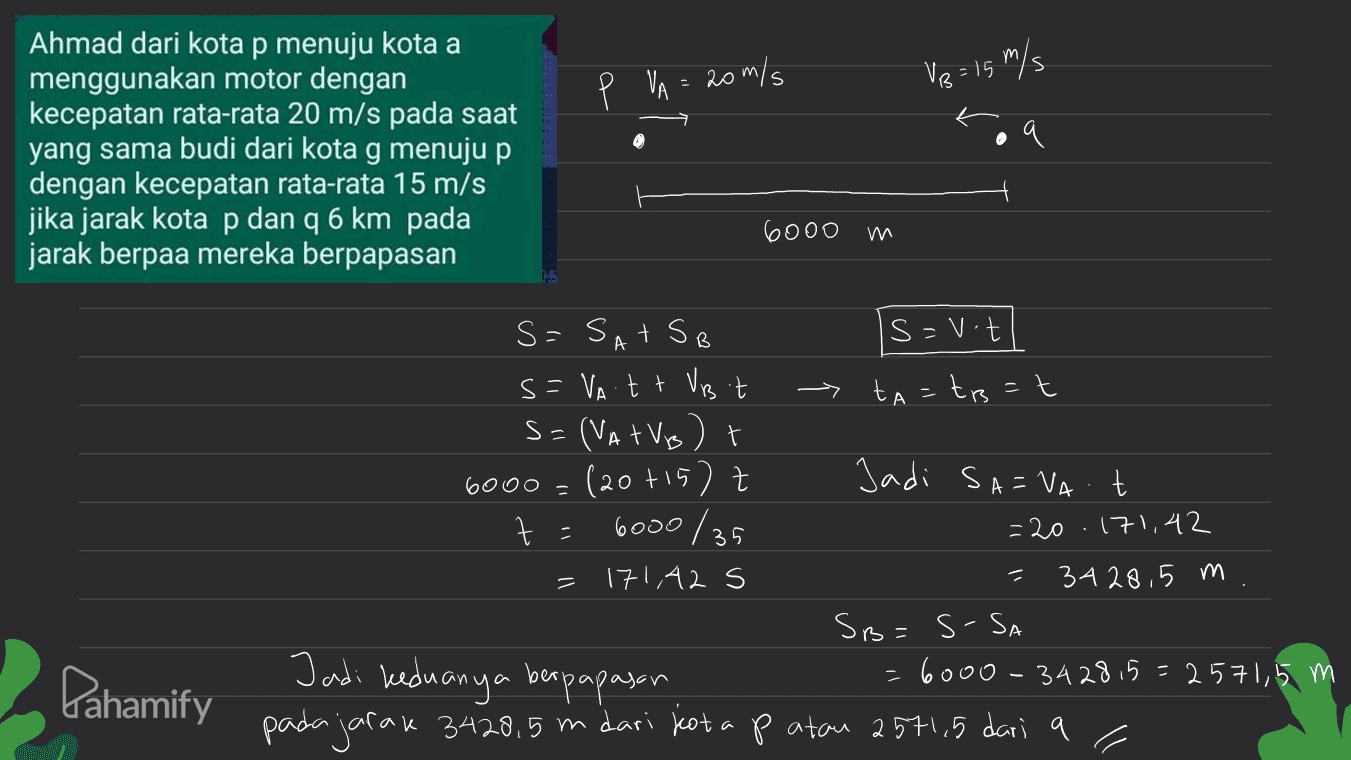 Ahmad dari kota p menuju kota a
menggunakan motor dengan
kecepatan rata-rata 20 m/s pada saat
yang sama budi dari kota g menuju p
dengan kecepatan rata-rata 15 m/s
jika jarak kota p dan q 6 km pada
jarak berpaa mereka berpapasan
P VA = 20 m/s
VB = 15 m/s
q
6000 m
S = SA + SB
S = VA.t + VB.t
S = (VA + VB) t
6000 = (20 + 15) t
t = 6000/35
= 171,42 s
S = V.t
→ tA = tB = t
Jadi SA = VA . t
= 20 . 171,42
= 3428,5 m.
SB = S - SA
= 6000 - 3428,5 = 2571,5 m
Jadi keduanya berpapasan
pada jarak 3428,5 m dari kota p atau 2571,5 dari q
Pahamify